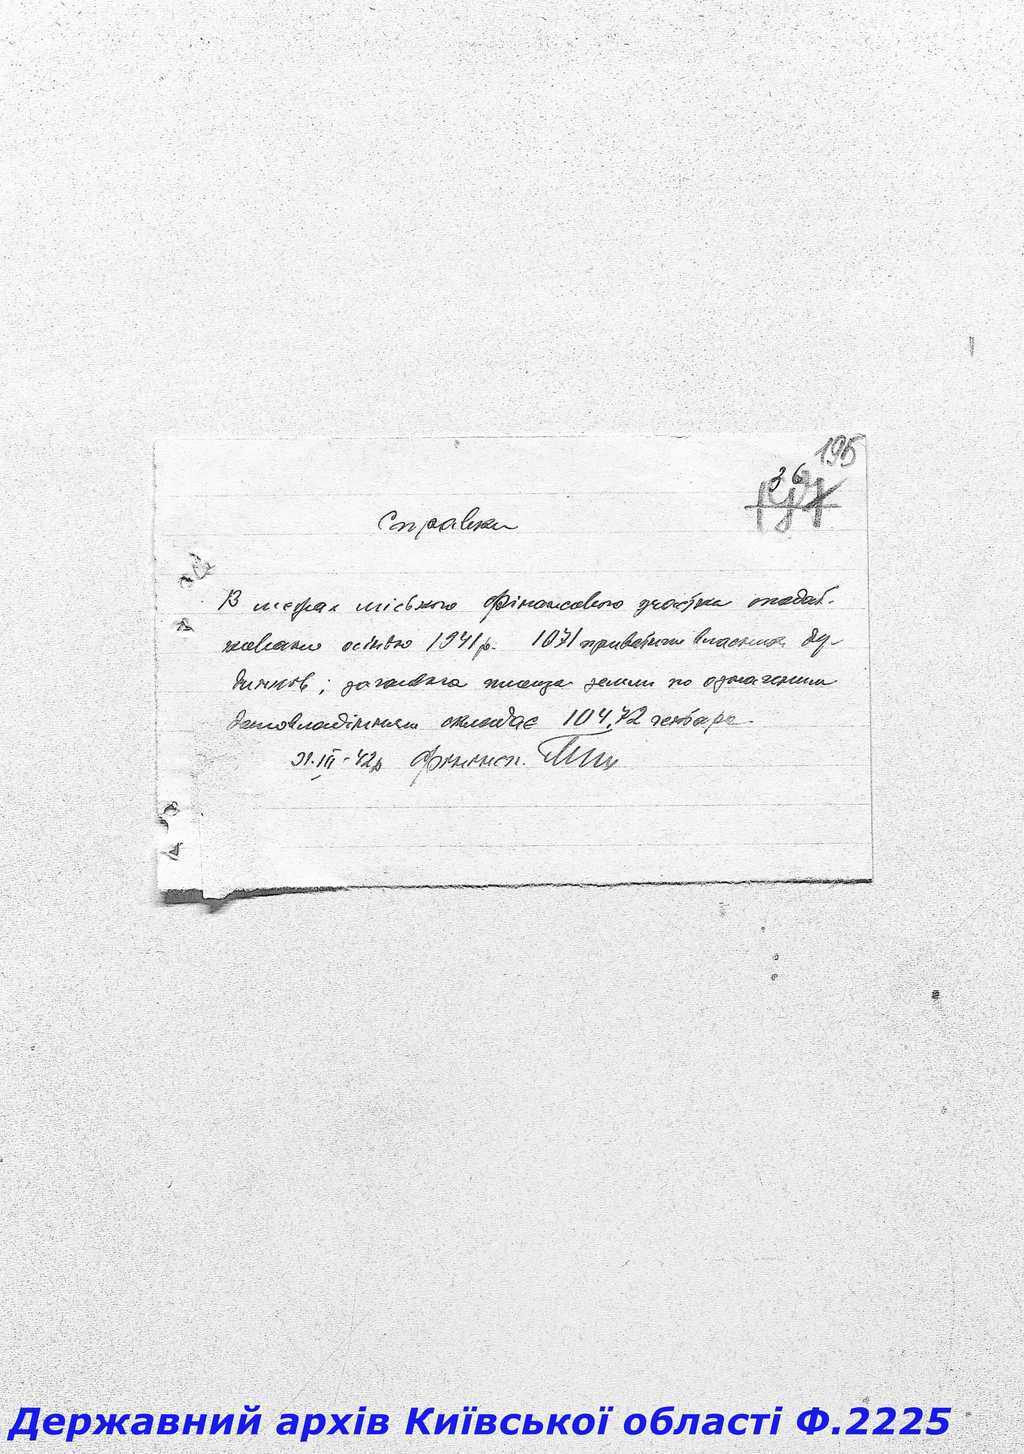 195
36
Справка
В межах міського фінансового участка оподат-
ковано осінню 1941 р. 1071 приватних власник. бу-
динків; загальна площа землі по означеним
домоволодінням складає 104,72 гектара.
31.III-42 р. Фінінсп.
Державний архів Київської області Ф.2225